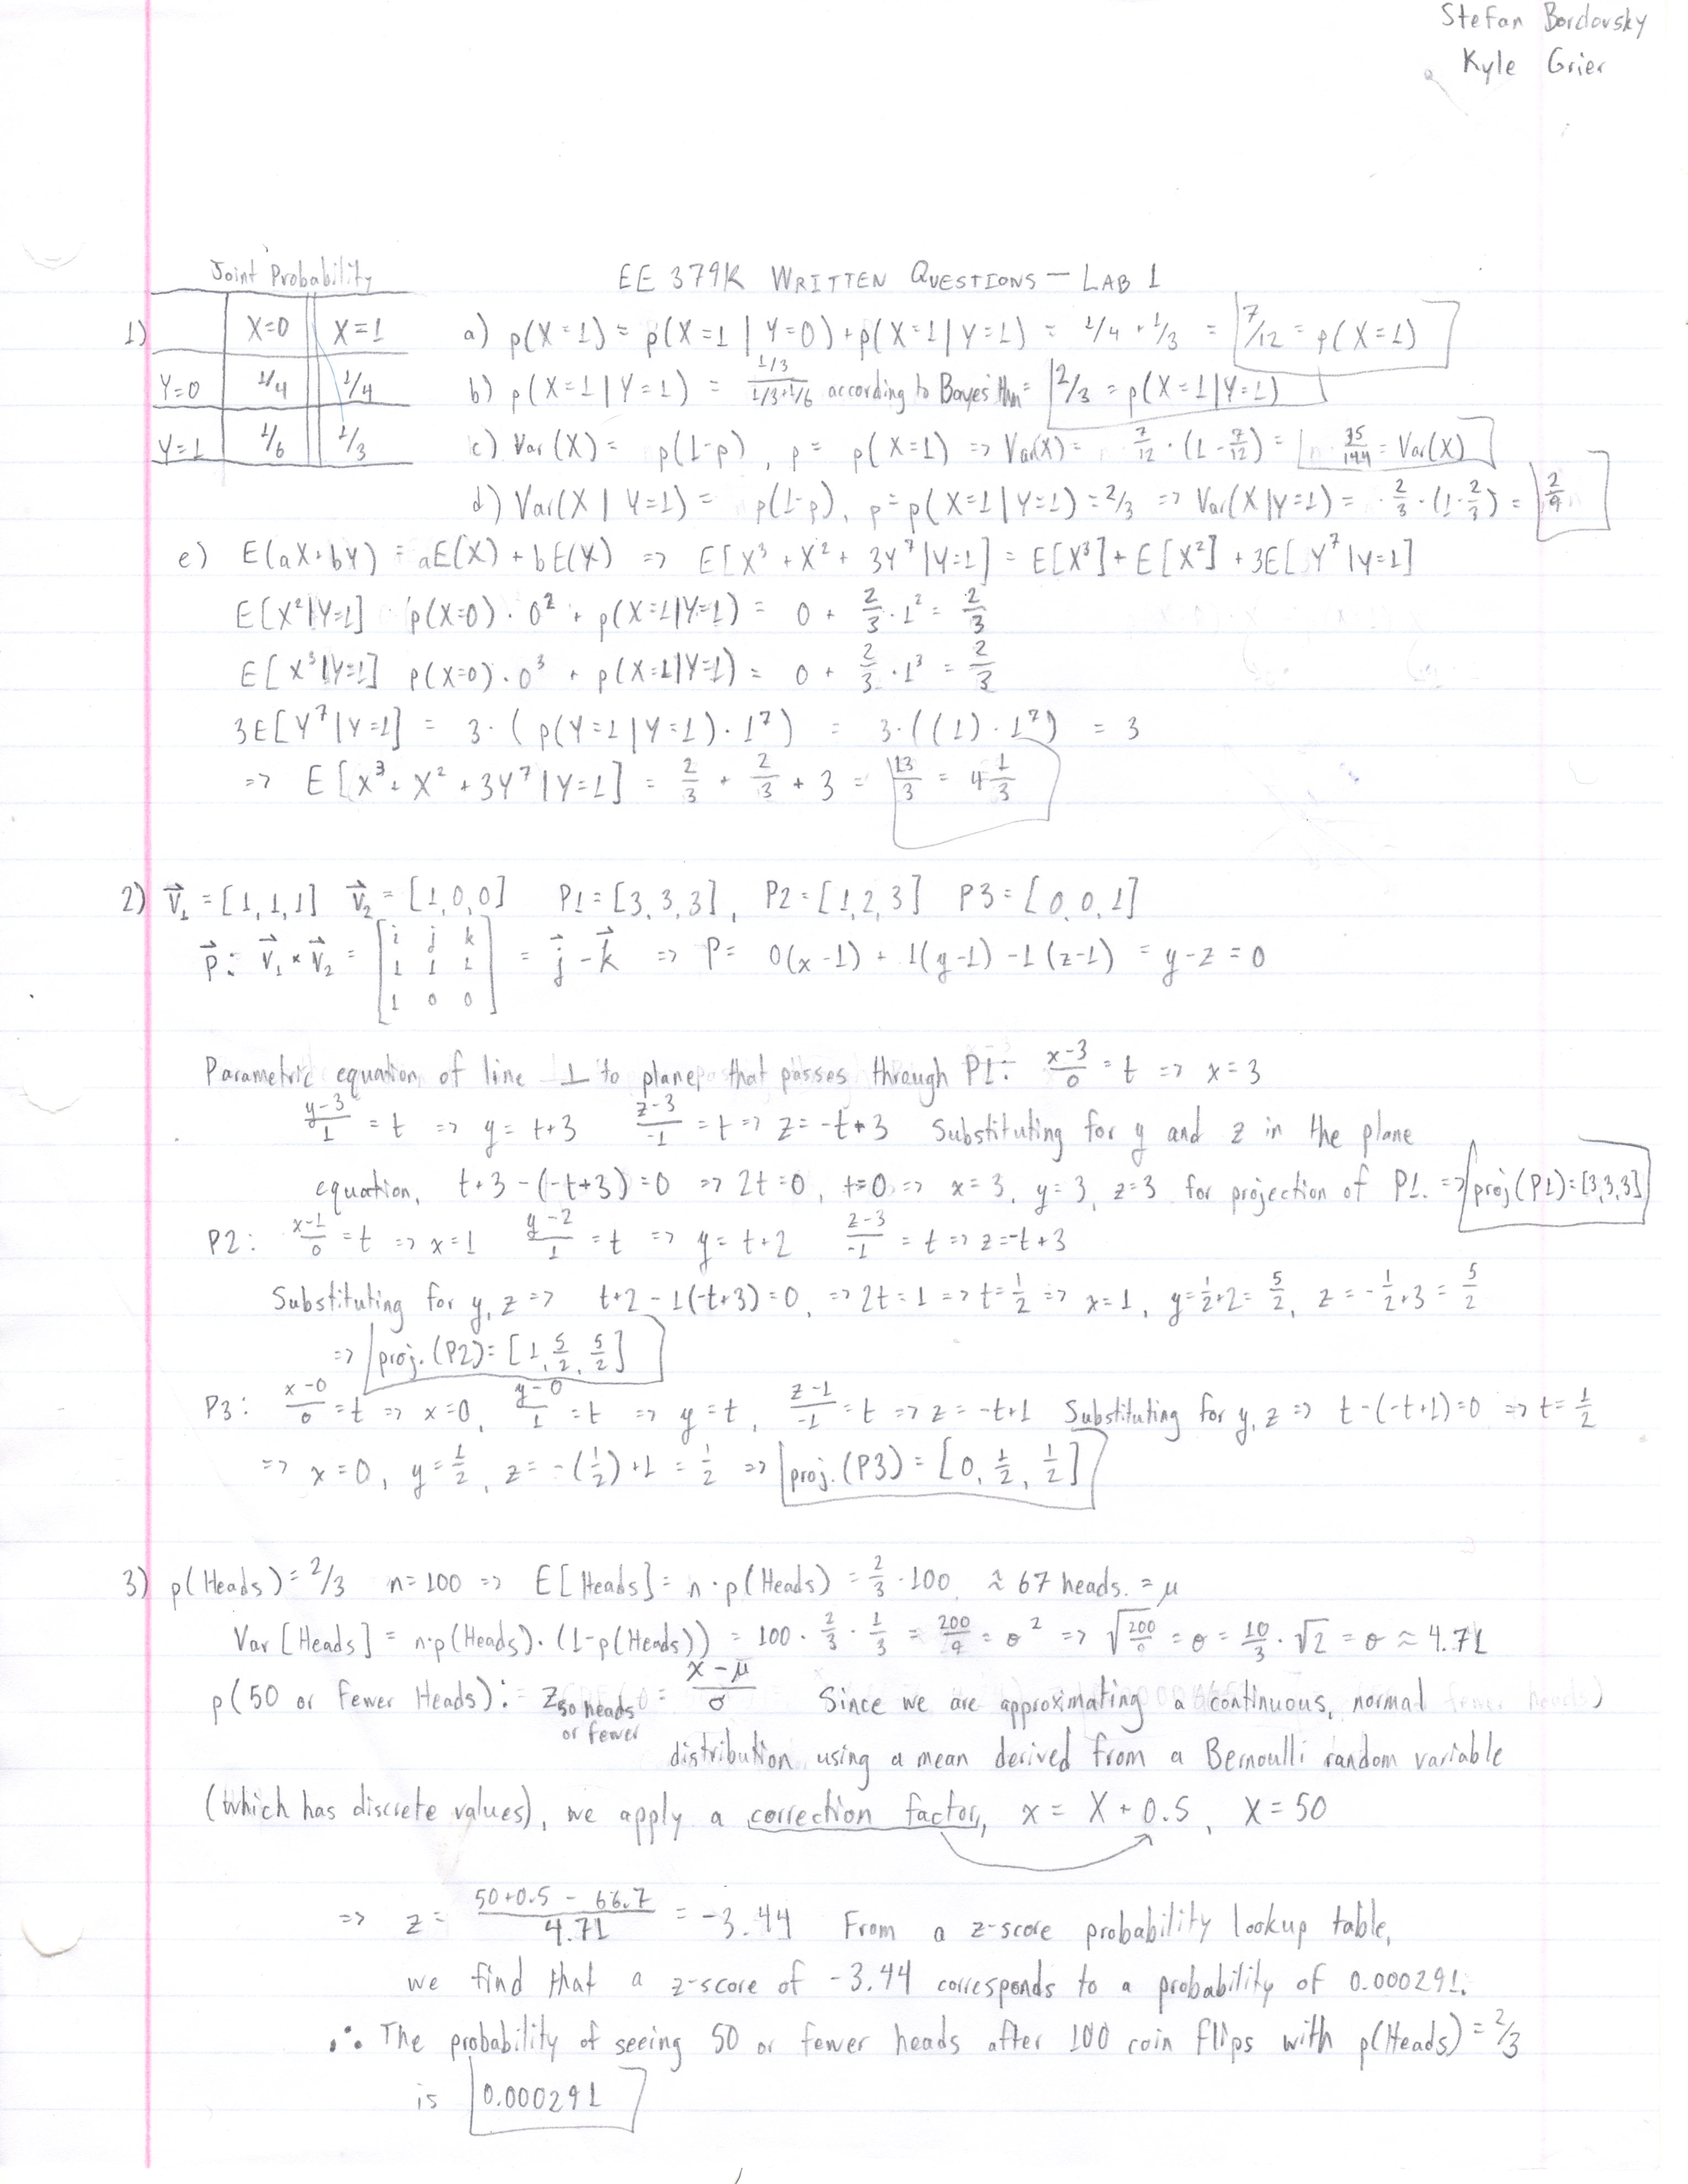 Stefan Bordovsky
Kyle Grier
Joint Probability
EE 379K WRITTEN QUESTIONS — LAB 1
1)
X=0 X=1
Y=0 1/4 1/4
Y=1 1/6 1/3
a) p(X=1) = p(X=1 | Y=0) + p(X=1 | Y=1) = 1/4 + 1/3 = 7/12 = p(X=1)
b) p(X=1 | Y=1) = (1/3)/(1/3+1/6) according to Bayes thm = 2/3 = p(X=1|Y=1)
c) Var(X) = p(1-p), p = p(X=1) => Var(X) = 7/12 · (1 - 7/12) = 35/144 = Var(X)
d) Var(X | Y=1) = p(1-p), p = p(X=1 | Y=1) = 2/3 => Var(X|Y=1) = 2/3 · (1-2/3) = 2/9
e) E(aX+bY) = aE(X) + bE(Y) => E[X³ + X² + 3Y⁷|Y=1] = E[X³] + E[X²] + 3E[Y⁷|Y=1]
E[X²|Y=1] p(X=0) · 0² + p(X=1|Y=1) = 0 + 2/3 · 1² = 2/3
E[X³|Y=1] p(X=0) · 0³ + p(X=1|Y=1) = 0 + 2/3 · 1³ = 2/3
3E[Y⁷|Y=1] = 3 · (p(Y=1|Y=1) · 1⁷) = 3 · ((1) · 1⁷) = 3
=> E[X³ + X² + 3Y⁷|Y=1] = 2/3 + 2/3 + 3 = 13/3 = 4 1/3
2) v⃗₁ = [1,1,1] v⃗₂ = [1,0,0] P1 = [3,3,3], P2 = [1,2,3] P3 = [0,0,1]
p⃗: v⃗₁ × v⃗₂ = [i j k; 1 1 1; 1 0 0] = j⃗ - k⃗ => P = 0(x-1) + 1(y-1) - 1(z-1) = y-z = 0
Parametric equation of line ⊥ to plane p that passes through P1: (x-3)/0 = t => x = 3
(y-3)/1 = t => y = t+3 (z-3)/-1 = t => z = -t+3 Substituting for y and z in the plane
equation, t+3 - (-t+3) = 0 => 2t = 0, t=0 => x = 3, y = 3, z=3 for projection of P1. => proj(P1) = [3,3,3]
P2: (x-1)/0 = t => x=1 (y-2)/1 = t => y = t+2 (z-3)/-1 = t => z = -t+3
Substituting for y, z => t+2 - 1(-t+3) = 0, => 2t = 1 => t = 1/2 => x=1, y = 1/2+2 = 5/2, z = -1/2+3 = 5/2
=> proj.(P2) = [1, 5/2, 5/2]
P3: (x-0)/0 = t => x=0, (y-0)/1 = t => y = t, (z-1)/-1 = t => z = -t+1 Substituting for y, z => t - (-t+1) = 0 => t = 1/2
=> x = 0, y = 1/2, z = -(1/2) + 1 = 1/2 => proj.(P3) = [0, 1/2, 1/2]
3) p(Heads) = 2/3 n = 100 => E[Heads] = n · p(Heads) = 2/3 · 100 ≈ 67 heads. = μ
Var[Heads] = n·p(Heads) · (1-p(Heads)) = 100 · 2/3 · 1/3 = 200/9 = σ² => √(200/9) = σ = 10/3 · √2 = σ ≈ 4.71
p(50 or Fewer Heads): z 50 heads or fewer = (x-μ)/σ Since we are approximating a continuous, normal
distribution using a mean derived from a Bernoulli random variable
(which has discrete values), we apply a correction factor, x = X + 0.5, X = 50
=> z = (50+0.5 - 66.7)/4.71 = -3.44 From a z-score probability lookup table,
we find that a z-score of -3.44 corresponds to a probability of 0.000291.
∴ The probability of seeing 50 or fewer heads after 100 coin flips with p(Heads) = 2/3
is 0.000291